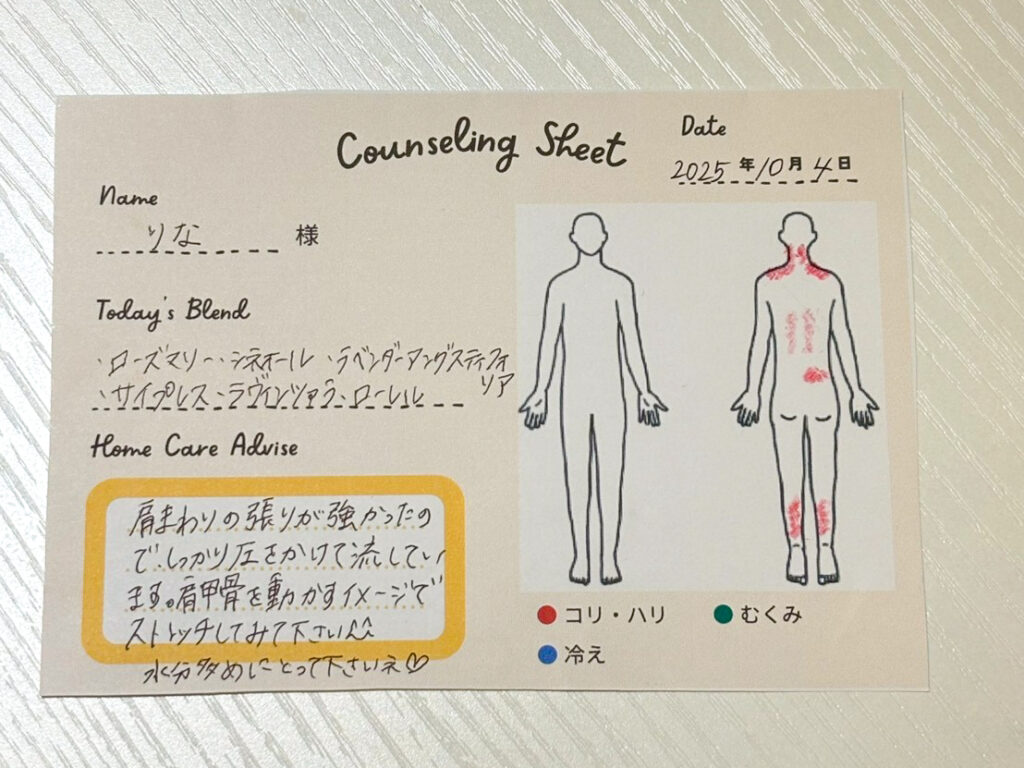 Counseling Sheet
Date
2025年10月4日
Name
りな 様
Today's Blend
・ローズマリー・シネオール・ラベンダーアングスティフォ
リア
・サイプレス・ラヴィンツァラ・ローレル
Home Care Advise
肩まわりの張りが強かったの
で、しっかり圧をかけて流してい
ます。肩甲骨を動かすイメージで
ストレッチしてみて下さい^^
水分多めにとって下さいネ♡
コリ・ハリ
むくみ
冷え